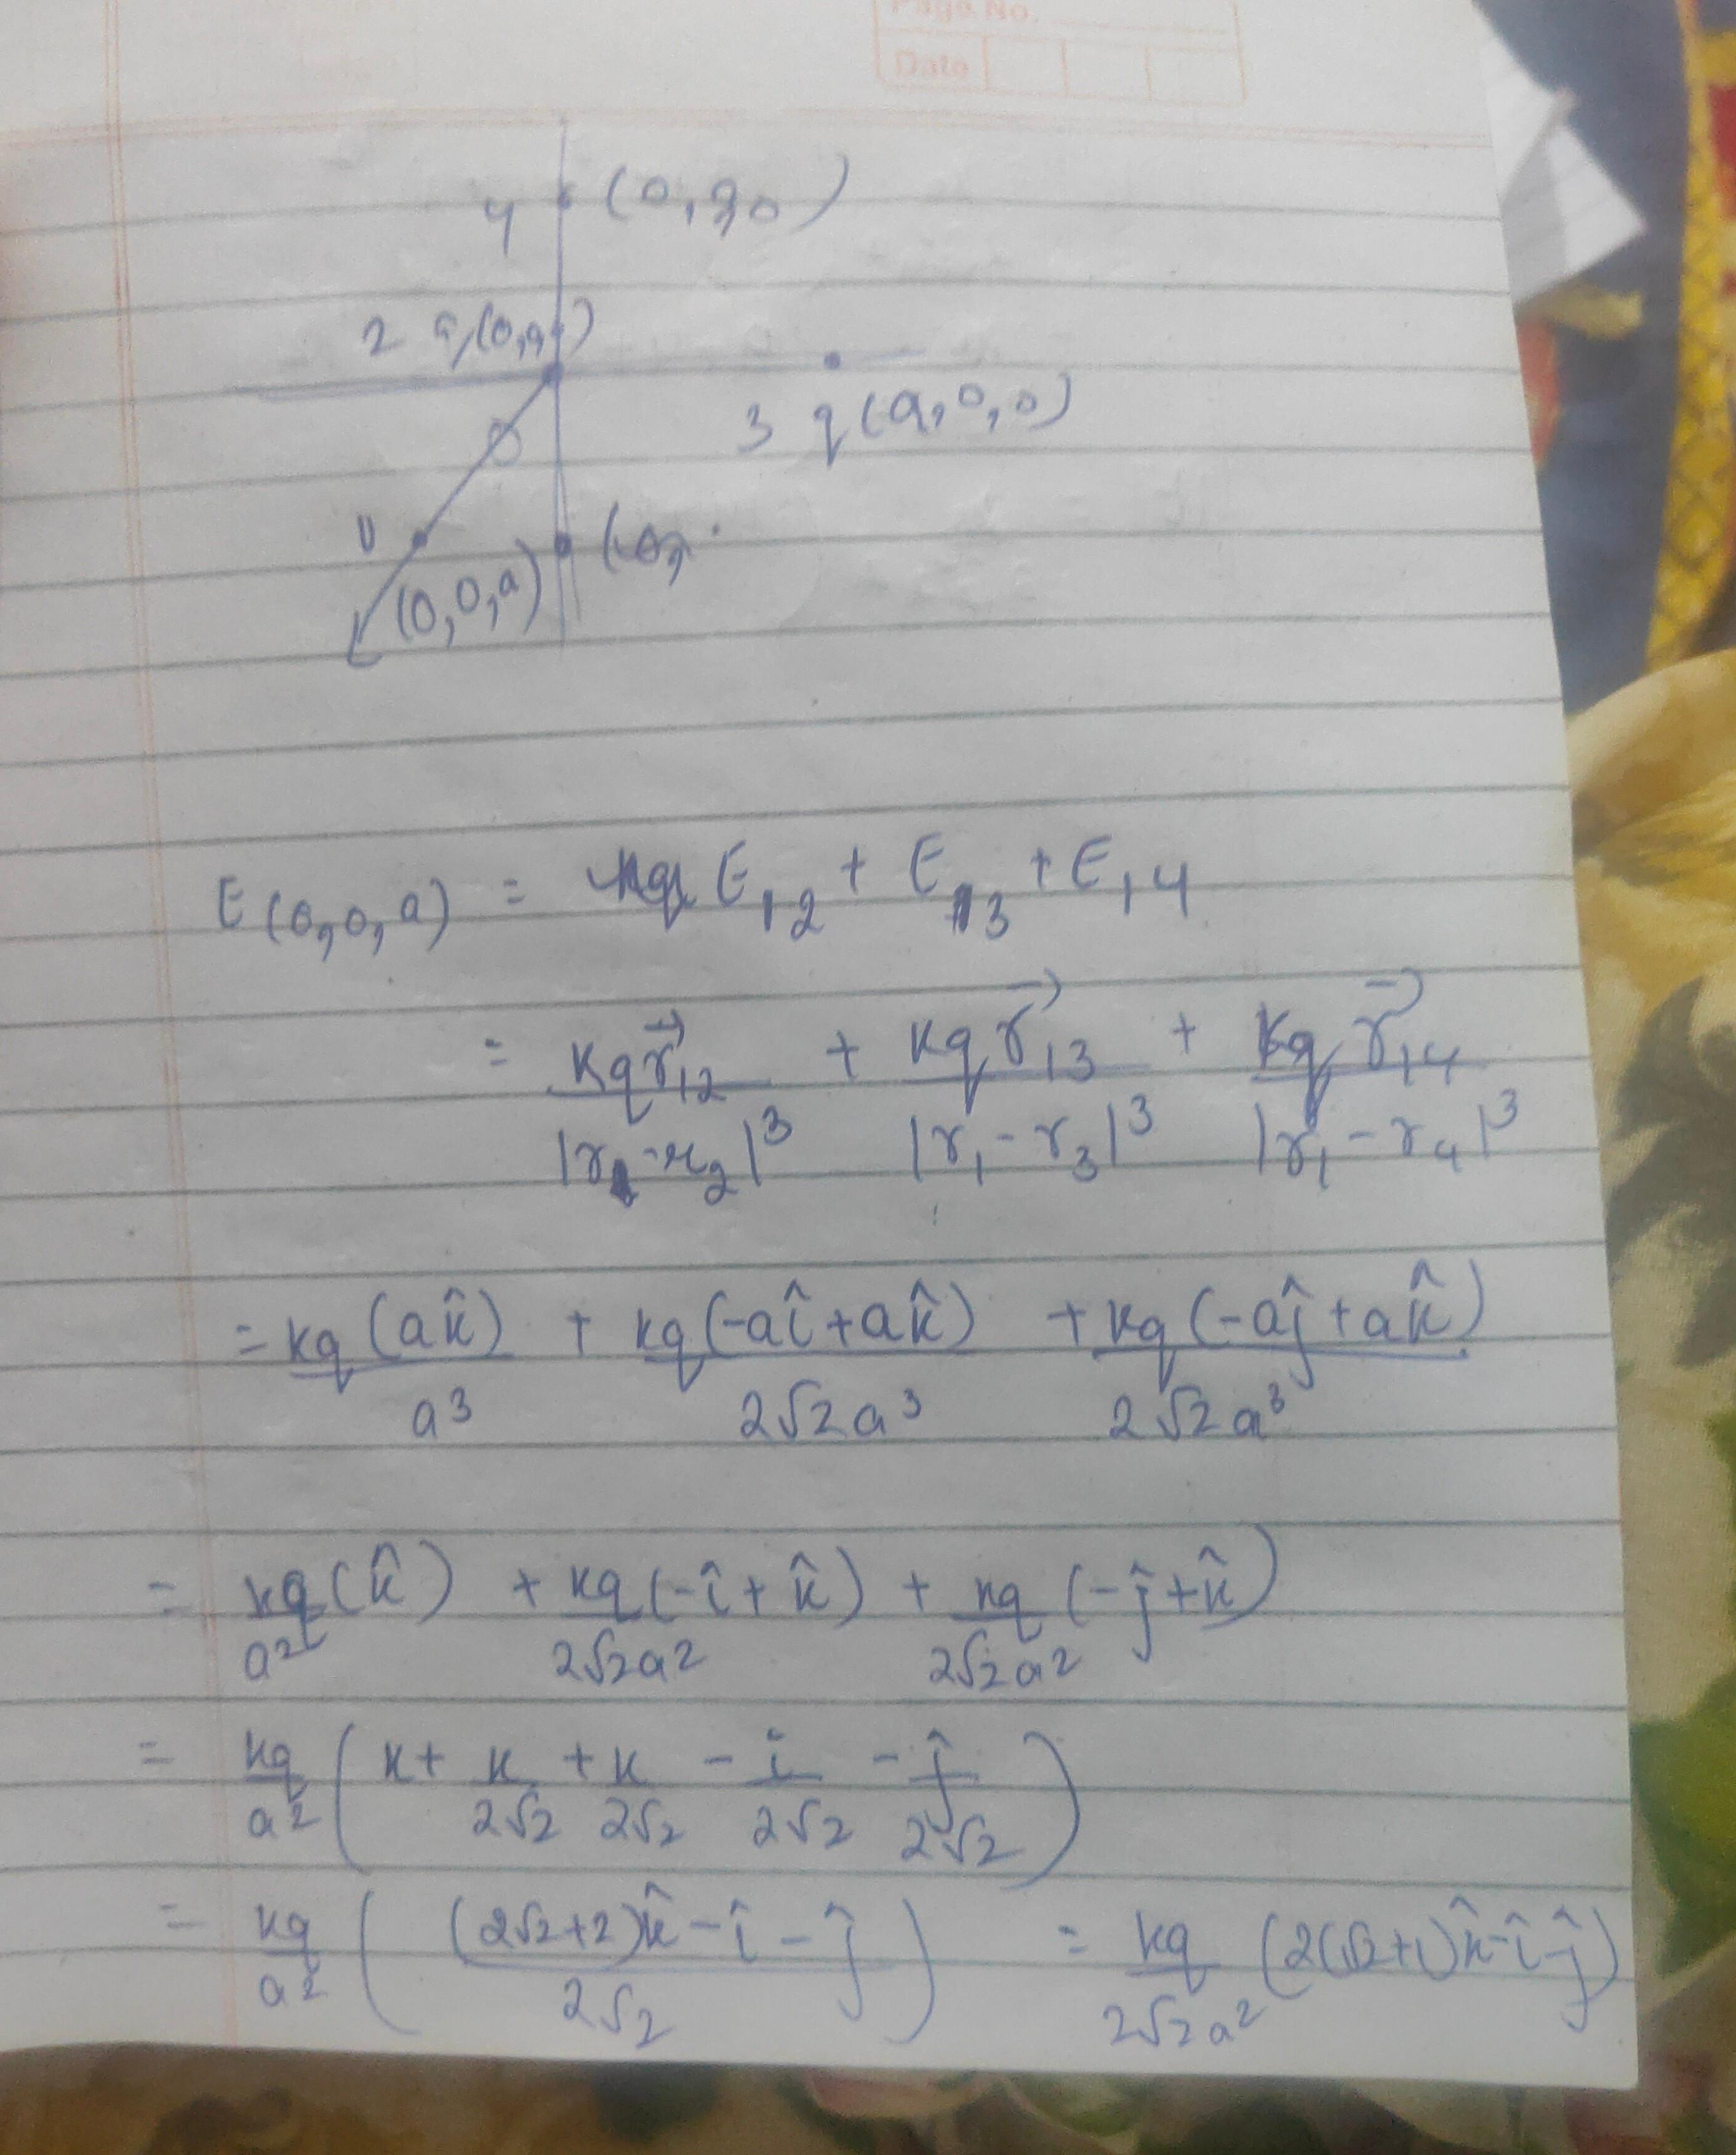 Page No.
Date
4 (0,a,0)
2 q(0,0,0)
3 q(a,0,0)
(0,0,a)
E(0,0,a) = E₁₂ + E₁₃ + E₁₄
= kq r⃗₁₂ / |r₁-r₂|³ + kq r⃗₁₃ / |r₁-r₃|³ + kq r⃗₁₄ / |r₁-r₄|³
= kq(ak̂) / a³ + kq(-aî+ak̂) / 2√2a³ + kq(-aĵ+ak̂) / 2√2a³
= kq/a² (k̂) + kq/2√2a² (-î+k̂) + kq/2√2a² (-ĵ+k̂)
= kq/a² (k + k/2√2 + k/2√2 - î/2√2 - ĵ/2√2)
= kq/a² ((2√2+2)k̂-î-ĵ / 2√2) = kq/2√2a² (2(√2+1)k̂-î-ĵ)